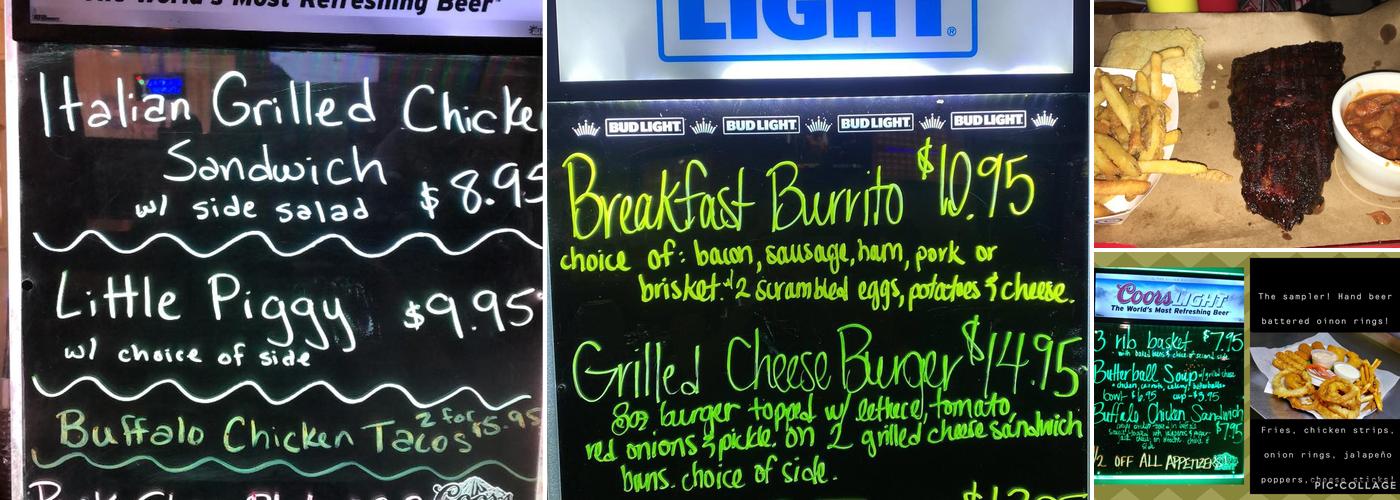 The World's Most Refreshing Beer
Italian Grilled Chicke
Sandwich
w/ side salad $8.95
Little Piggy $9.95
w/ choice of side
Buffalo Chicken Tacos 2 for $5.95
LIGHT®
BUD LIGHT BUD LIGHT BUD LIGHT BUD LIGHT
Breakfast Burrito $10.95
choice of: bacon, sausage, ham, pork or
brisket. 2 scrambled eggs, potatoes & cheese.
Grilled Cheese Burger $14.95
8oz burger topped w/ lettuce, tomato,
red onions & pickle. on 2 grilled cheese sandwich
buns. choice of side.
Coors LIGHT
The World's Most Refreshing Beer
3 rib basket $7.95
Butterball Soup
bowl- $6.95 cup- $3.95
Buffalo Chicken Sandwich
$7.95
1/2 OFF ALL APPETIZERS
The sampler! Hand beer
battered oinon rings!
Fries, chicken strips,
onion rings, jalapeño
poppers, cheese sticks
PIC COLLAGE